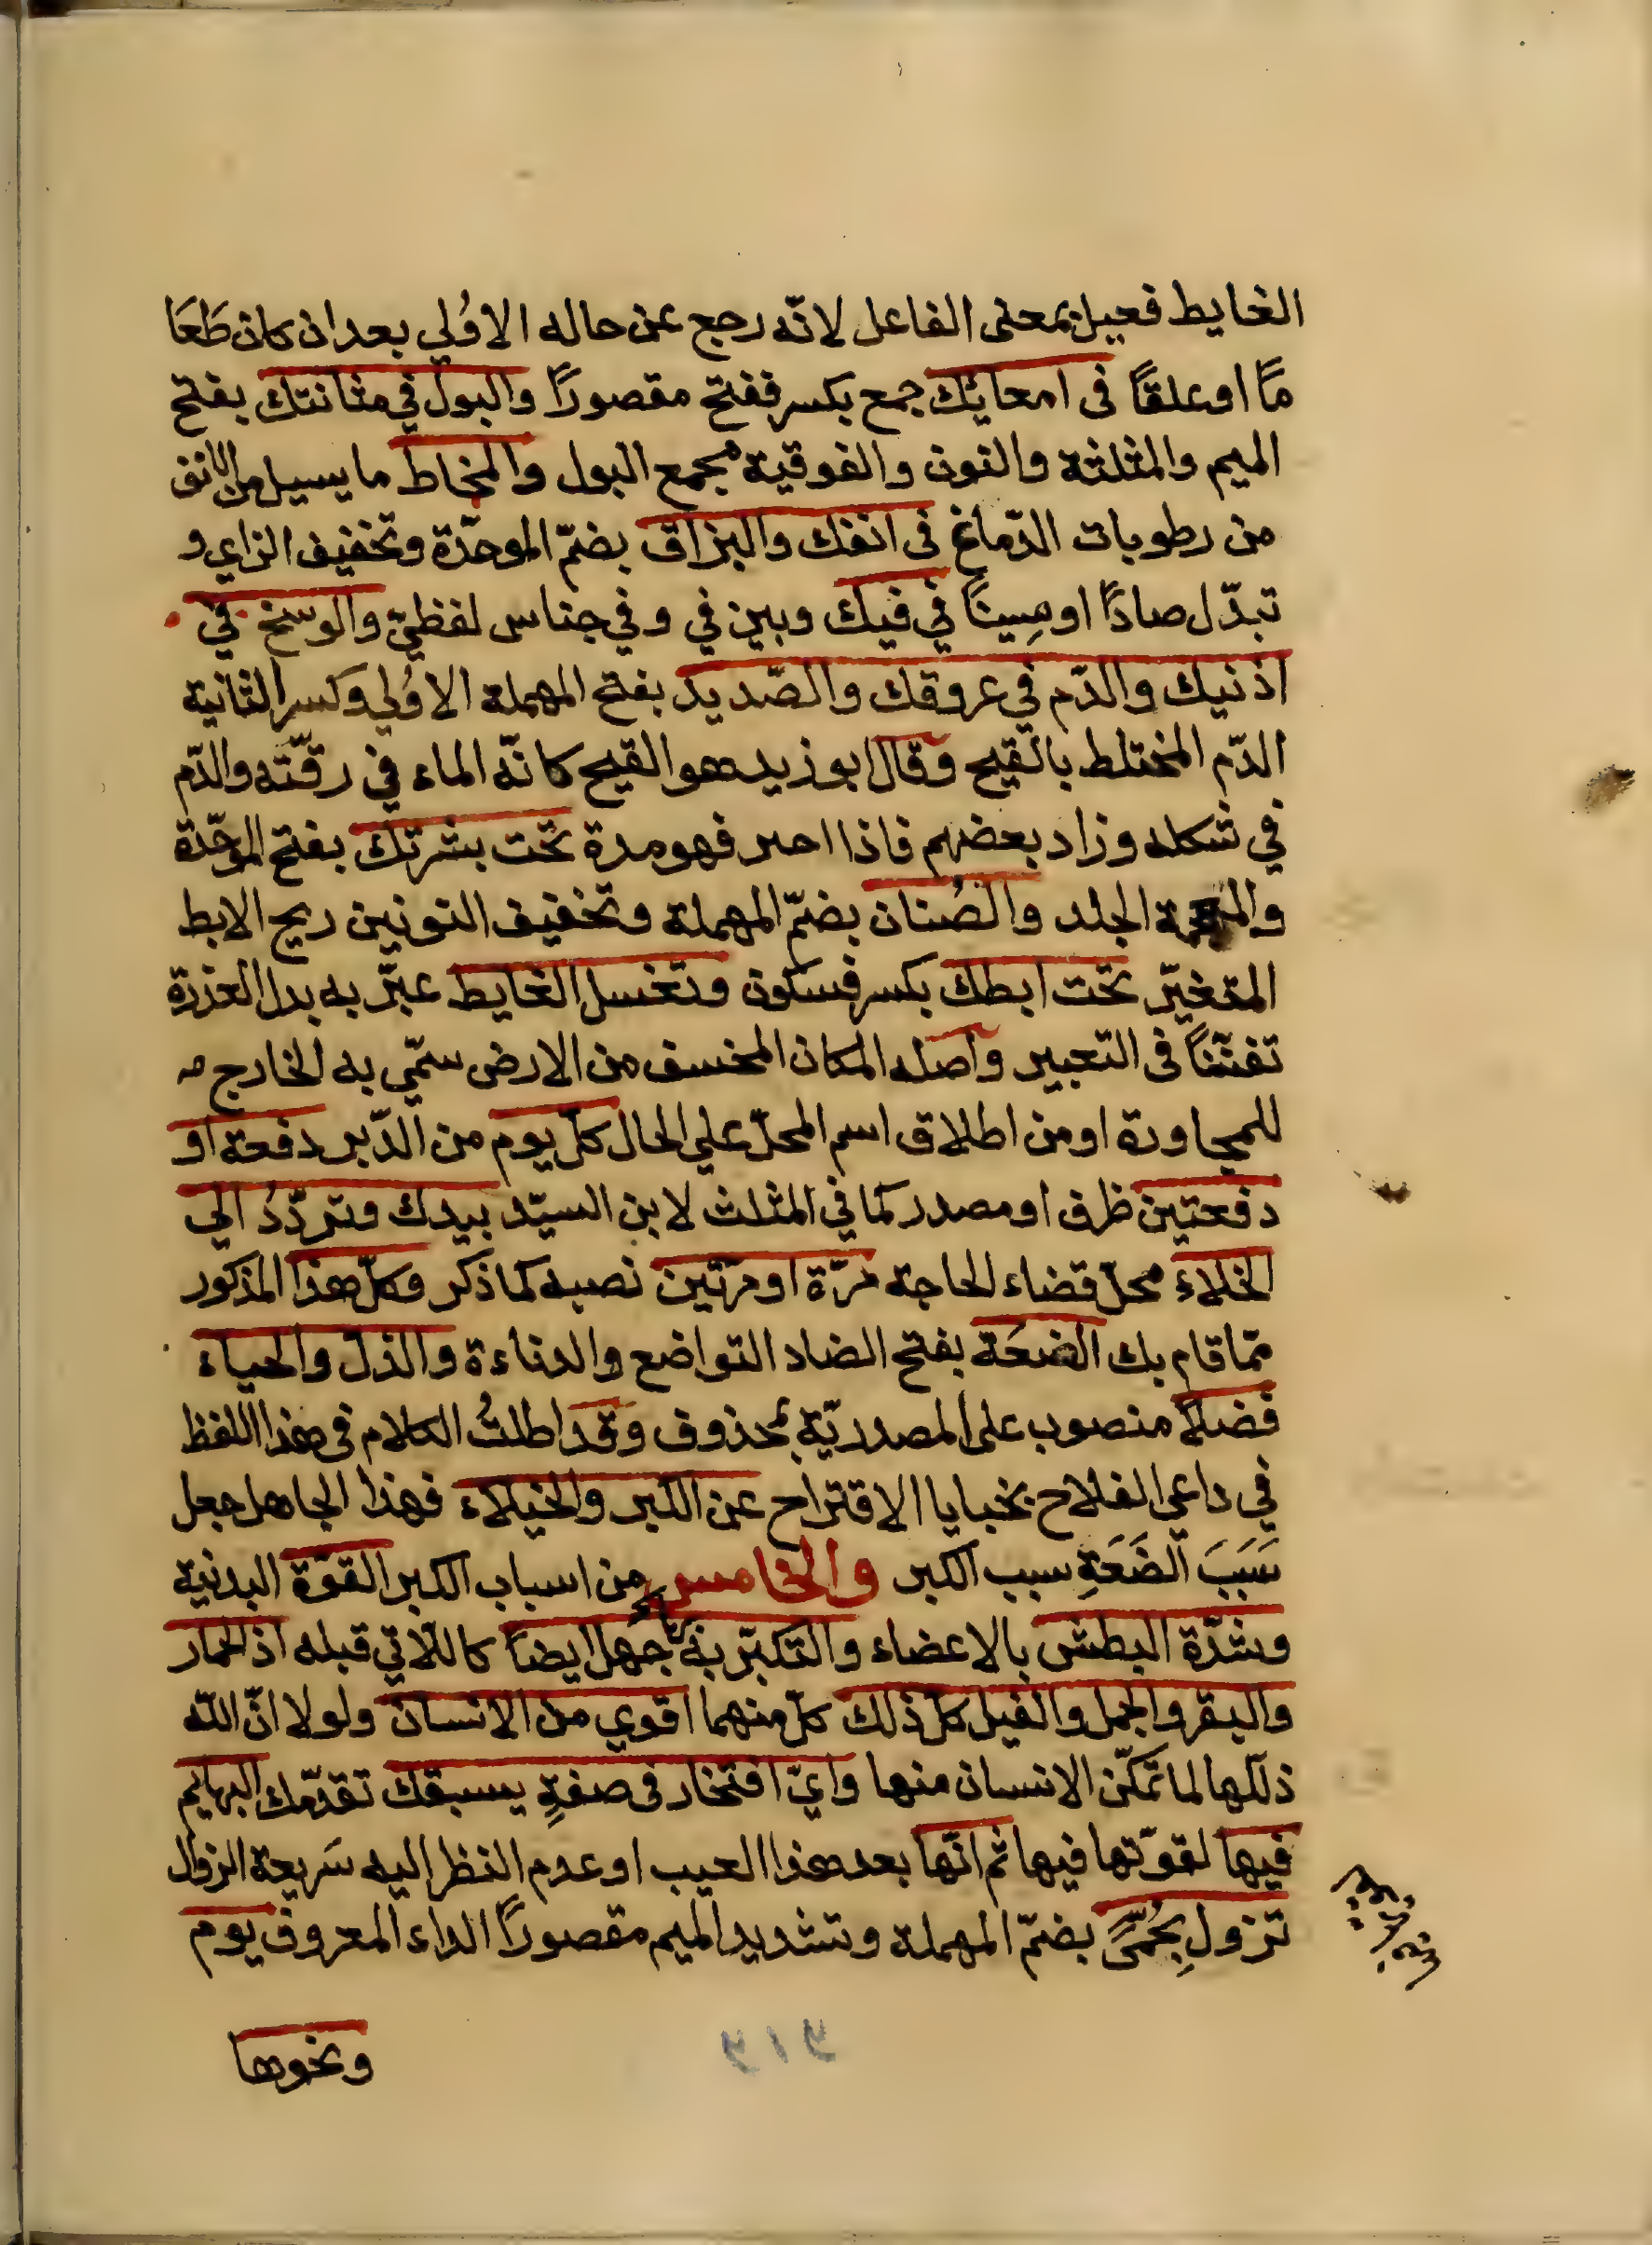 الغايط فعيل بمعنى الفاعل لانّه رجع عن حاله الاوُلي بعد ان كان طَعَا
مًا او علقًا فى امعايك جمع بكسر ففتح مقصورًا والبول في مثانتك بفتح
الميم والمثلثة والنون والفوقية مجمع البول والمخاط ما يسيل من الانف
من رطوبات الدّماغ فى انفك والبزاق بضمّ الموحّدة وتخفيف الزاي و
تبدّل صادًا او سِينًا في فيك وبين في وفي جناس لفظيّ والوسخ في
اذنيك والدّم في عروقك والصّديد بفتح المهملة الاوُلي وكسر الثانية
الدّم المختلط بالقيح وقال ابو زيد هو القيح كانّه الماء في رقّته والدّم
في شكله وزاد بعضهم فاذا احمر فهو مدة تحت بشرتك بفتح الموحّدة
والمعجمة الجلد والصُنان بضمّ المهملة وتخفيف النونين ريح الابط
المتغيّر تحت ابطك بكسر فسكون وتغسل الغايط عبّر به بدل العذرة
تفنّنًا فى التعبير واصله المكان المنخسف من الارض سمّي به الخارج
للمجاورة او من اطلاق اسم المحلّ علي الحال كلّ يوم من الدّبر دفعة او
دفعتين ظرف او مصدر كما في المثلث لابن السيّد بيدك وتردّدُ الي
الخلاء محلّ قضاء الحاجة مرّة او مرّتين نصبه كما ذكر وكلّ هذا المذكور
ممّا قام بك الضعَة بفتح الضاد التواضع والدناءة والذلّ والحياء
فضلًا منصوب على المصدريّة بمحذوف وقد اطلتُ الكلام فى هذا اللفظ
في داعي الفلاح بخبايا الاقتراح عن الكبر والخيلاء فهذا الجاهل جعل
سَبَبَ الضَعَةِ سبب الكبر والخامس من اسباب الكبر القوّة البدنية
وشدّة البطش بالاعضاء والتكبّر بها جهل ايضًا كاللاتي قبله اذ الحمار
والبقر والجمل والفيل كلّ ذلك كلّ منهما اقوي من الانسان ولولا انّ الله
ذلّلها لما تمكّن الانسان منها وايّ افتخار فى صفةٍ يسبقك تقدّمك البهايم
فيها لقوّتها فيها ثم انّها بعد هذا العيب او عدم النظر اليه سَريعة الزوال
تزول بِحُمّىً بضمّ المهملة وتشديد الميم مقصورًا الداء المعروف يوم
ونحوها